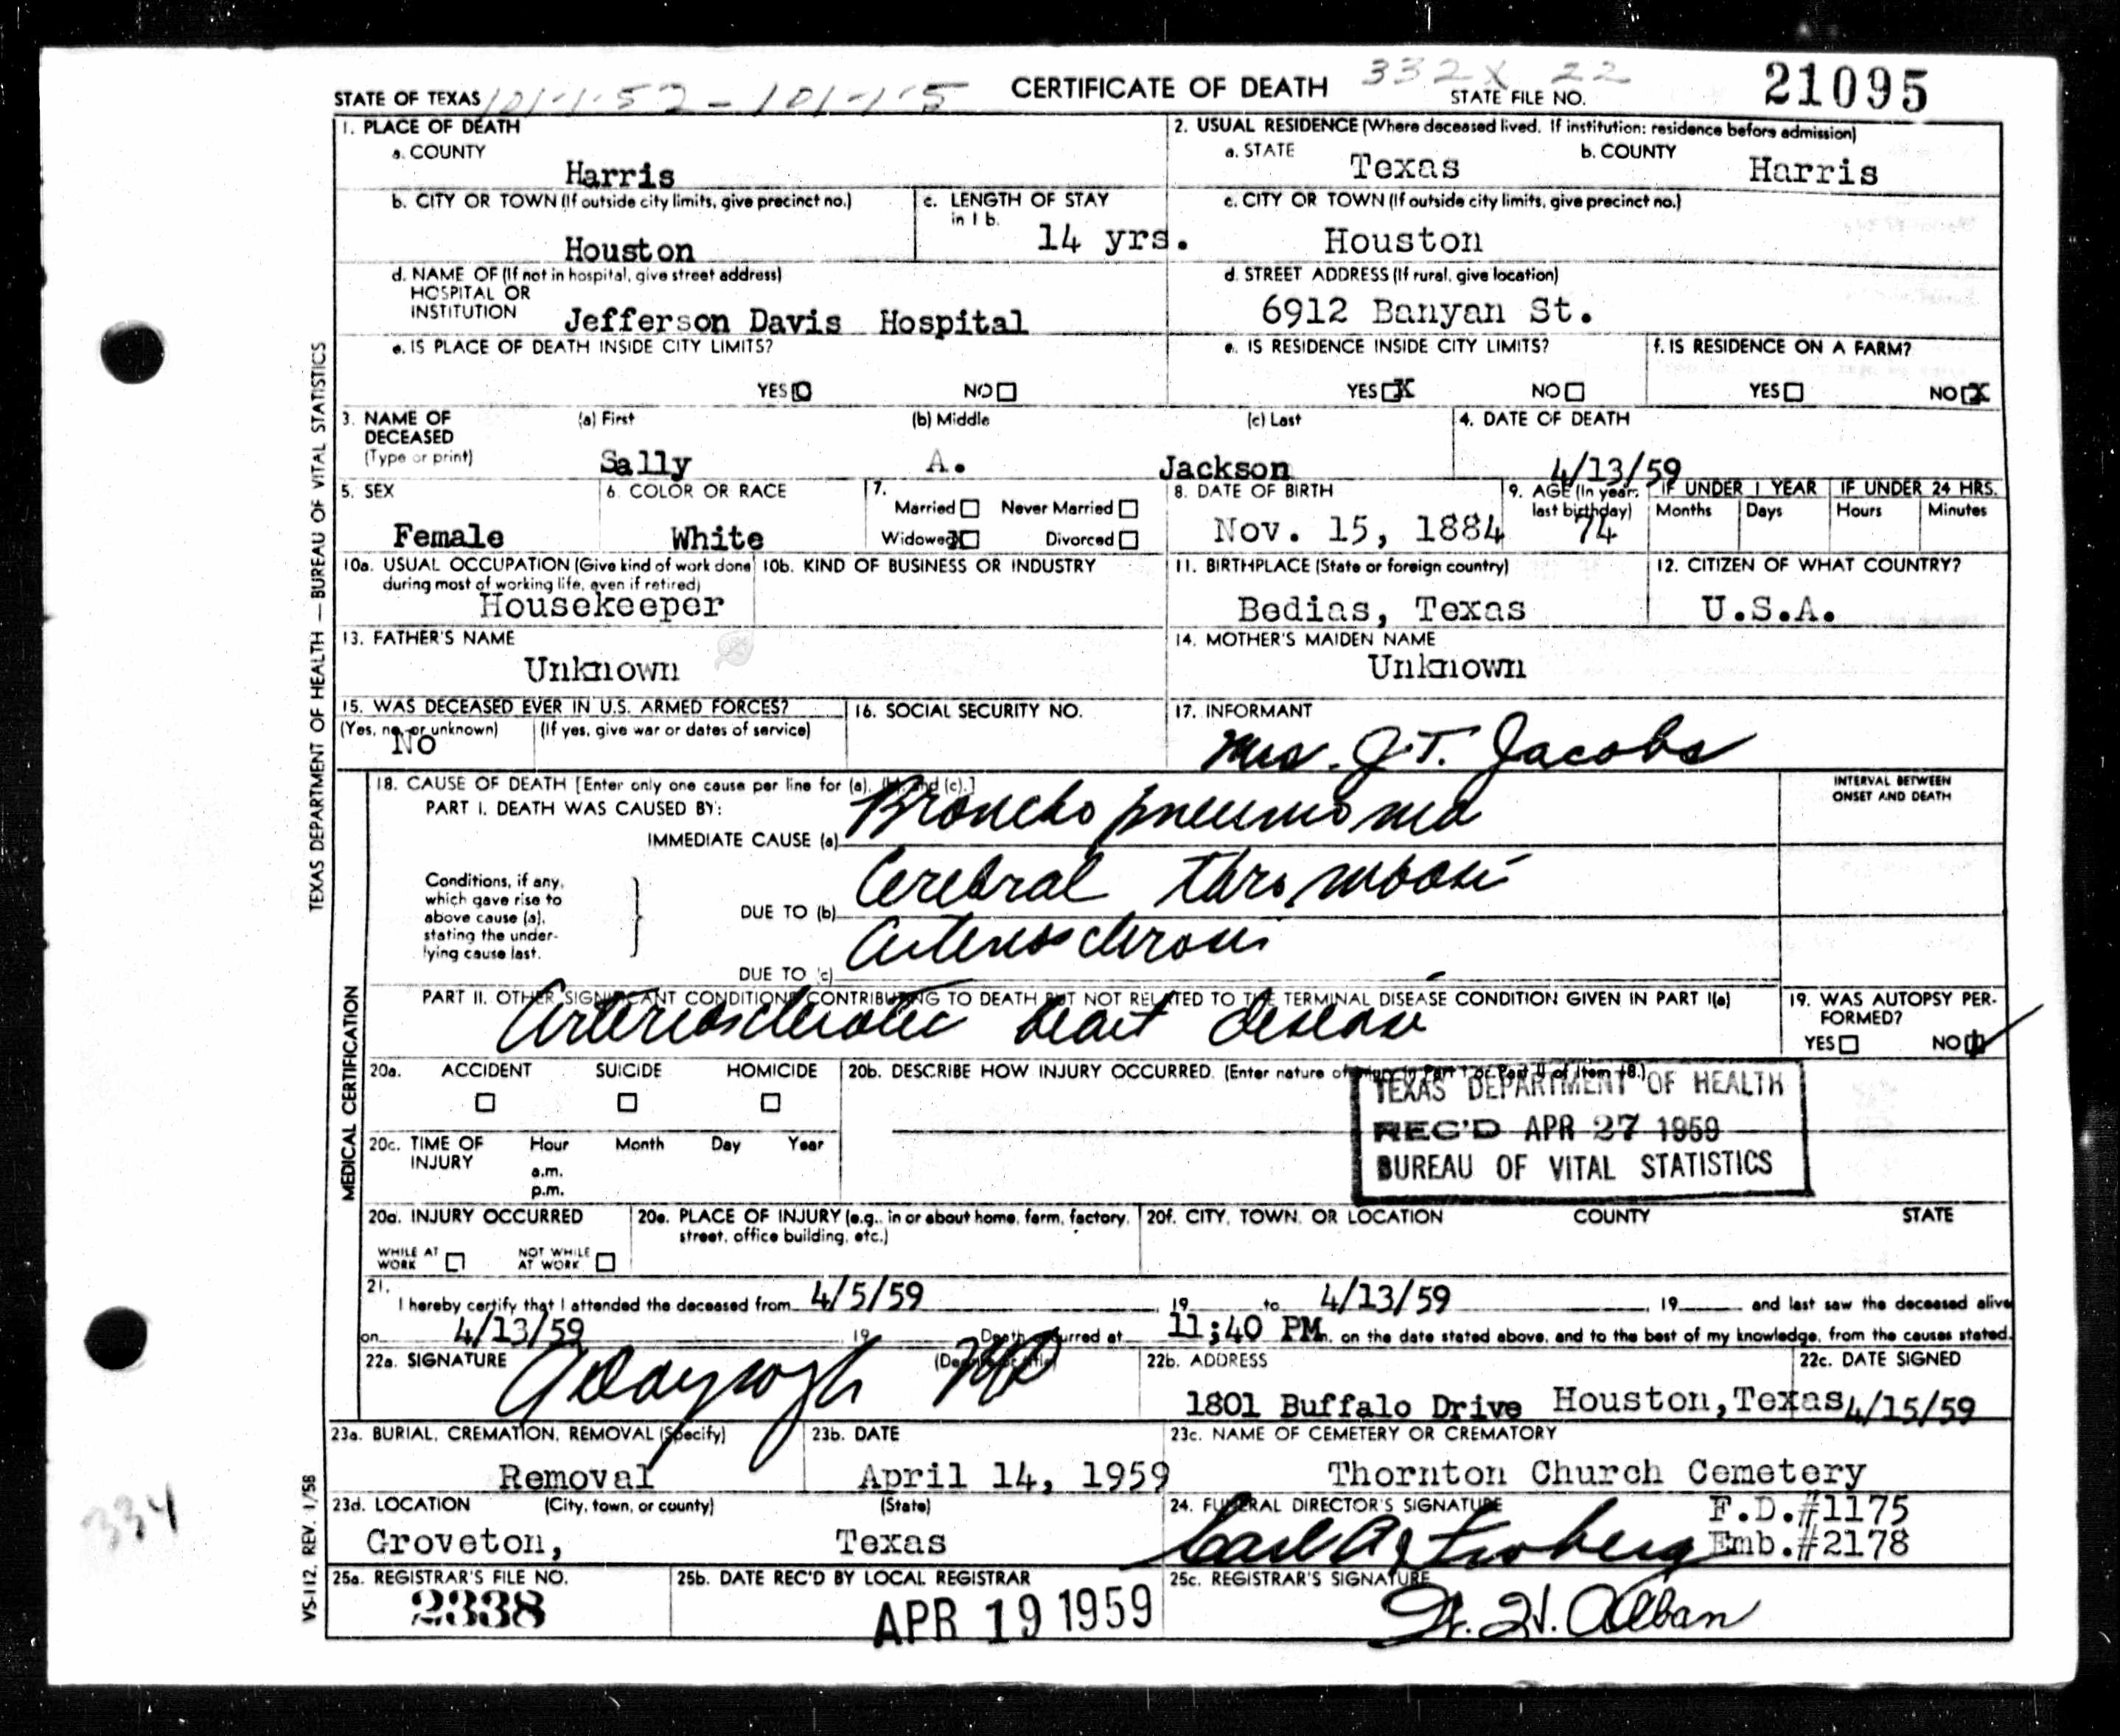 STATE OF TEXAS CERTIFICATE OF DEATH 332X 22 STATE FILE NO. 21095
1. PLACE OF DEATH
a. COUNTY
Harris
2. USUAL RESIDENCE (Where deceased lived. If institution: residence before admission)
a. STATE Texas b. COUNTY Harris
b. CITY OR TOWN (If outside city limits, give precinct no.)
Houston
c. LENGTH OF STAY in 1 b.
14 yrs.
c. CITY OR TOWN (If outside city limits, give precinct no.)
Houston
d. NAME OF (If not in hospital, give street address)
HOSPITAL OR
INSTITUTION Jefferson Davis Hospital
d. STREET ADDRESS (If rural, give location)
6912 Banyan St.
e. IS PLACE OF DEATH INSIDE CITY LIMITS?
YES NO
e. IS RESIDENCE INSIDE CITY LIMITS?
YES X NO
f. IS RESIDENCE ON A FARM?
YES NO X
3. NAME OF DECEASED (Type or print)
(a) First (b) Middle (c) Last
Sally A. Jackson
4. DATE OF DEATH
4/13/59
5. SEX
Female
6. COLOR OR RACE
White
7.
Married Never Married
Widowed X Divorced
8. DATE OF BIRTH
Nov. 15, 1884
9. AGE (In years last birthday)
74
IF UNDER 1 YEAR
Months Days
IF UNDER 24 HRS.
Hours Minutes
10a. USUAL OCCUPATION (Give kind of work done
during most of working life, even if retired)
Housekeeper
10b. KIND OF BUSINESS OR INDUSTRY
11. BIRTHPLACE (State or foreign country)
Bedias, Texas
12. CITIZEN OF WHAT COUNTRY?
U.S.A.
13. FATHER'S NAME
Unknown
14. MOTHER'S MAIDEN NAME
Unknown
15. WAS DECEASED EVER IN U.S. ARMED FORCES?
(Yes, no, or unknown) (If yes, give war or dates of service)
No
16. SOCIAL SECURITY NO.
17. INFORMANT
Mrs. J.T. Jacobs
18. CAUSE OF DEATH [Enter only one cause per line for (a), (b), and (c).]
INTERVAL BETWEEN
ONSET AND DEATH
PART I. DEATH WAS CAUSED BY:
IMMEDIATE CAUSE (a) Broncho pneumonia
Conditions, if any,
which gave rise to
above cause (a),
stating the under-
lying cause last.
DUE TO (b) Cerebral thrombosis
DUE TO (c) Arteriosclerosis
PART II. OTHER SIGNIFICANT CONDITIONS CONTRIBUTING TO DEATH BUT NOT RELATED TO THE TERMINAL DISEASE CONDITION GIVEN IN PART I(a)
Arteriosclerotic heart disease
19. WAS AUTOPSY PER-
FORMED?
YES NO
20a. ACCIDENT SUICIDE HOMICIDE
20b. DESCRIBE HOW INJURY OCCURRED. (Enter nature of injury in Part I or Part II of Item 18.)
TEXAS DEPARTMENT OF HEALTH
REC'D APR 27 1959
BUREAU OF VITAL STATISTICS
20c. TIME OF INJURY
Hour Month Day Year
a.m.
p.m.
20d. INJURY OCCURRED
WHILE AT WORK NOT WHILE AT WORK
20e. PLACE OF INJURY (e.g., in or about home, farm, factory,
street, office building, etc.)
20f. CITY, TOWN, OR LOCATION COUNTY STATE
21.
I hereby certify that I attended the deceased from 4/5/59, 19 to 4/13/59, 19 and last saw the deceased alive
on 4/13/59 19 Death occurred at 11:40 PM. on the date stated above, and to the best of my knowledge, from the causes stated.
22a. SIGNATURE (Degree or title)
MD
22b. ADDRESS
1801 Buffalo Drive Houston, Texas
22c. DATE SIGNED
4/15/59
23a. BURIAL, CREMATION, REMOVAL (Specify)
Removal
23b. DATE
April 14, 1959
23c. NAME OF CEMETERY OR CREMATORY
Thornton Church Cemetery
23d. LOCATION (City, town, or county) (State)
Groveton, Texas
24. FUNERAL DIRECTOR'S SIGNATURE
F.D.#1175
Emb.#2178
25a. REGISTRAR'S FILE NO.
2338
25b. DATE REC'D BY LOCAL REGISTRAR
APR 19 1959
25c. REGISTRAR'S SIGNATURE
Alban
TEXAS DEPARTMENT OF HEALTH — BUREAU OF VITAL STATISTICS
MEDICAL CERTIFICATION
VS-112. REV. 1/58
334